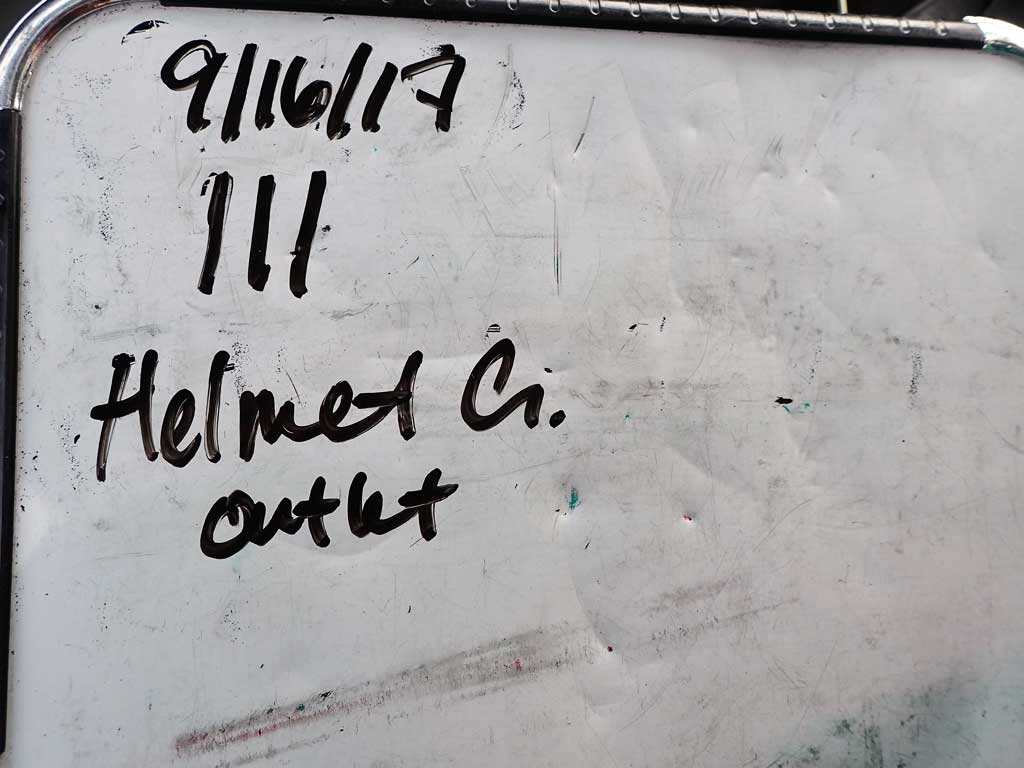 9/16/17
111
Helmet Cr.
outlet